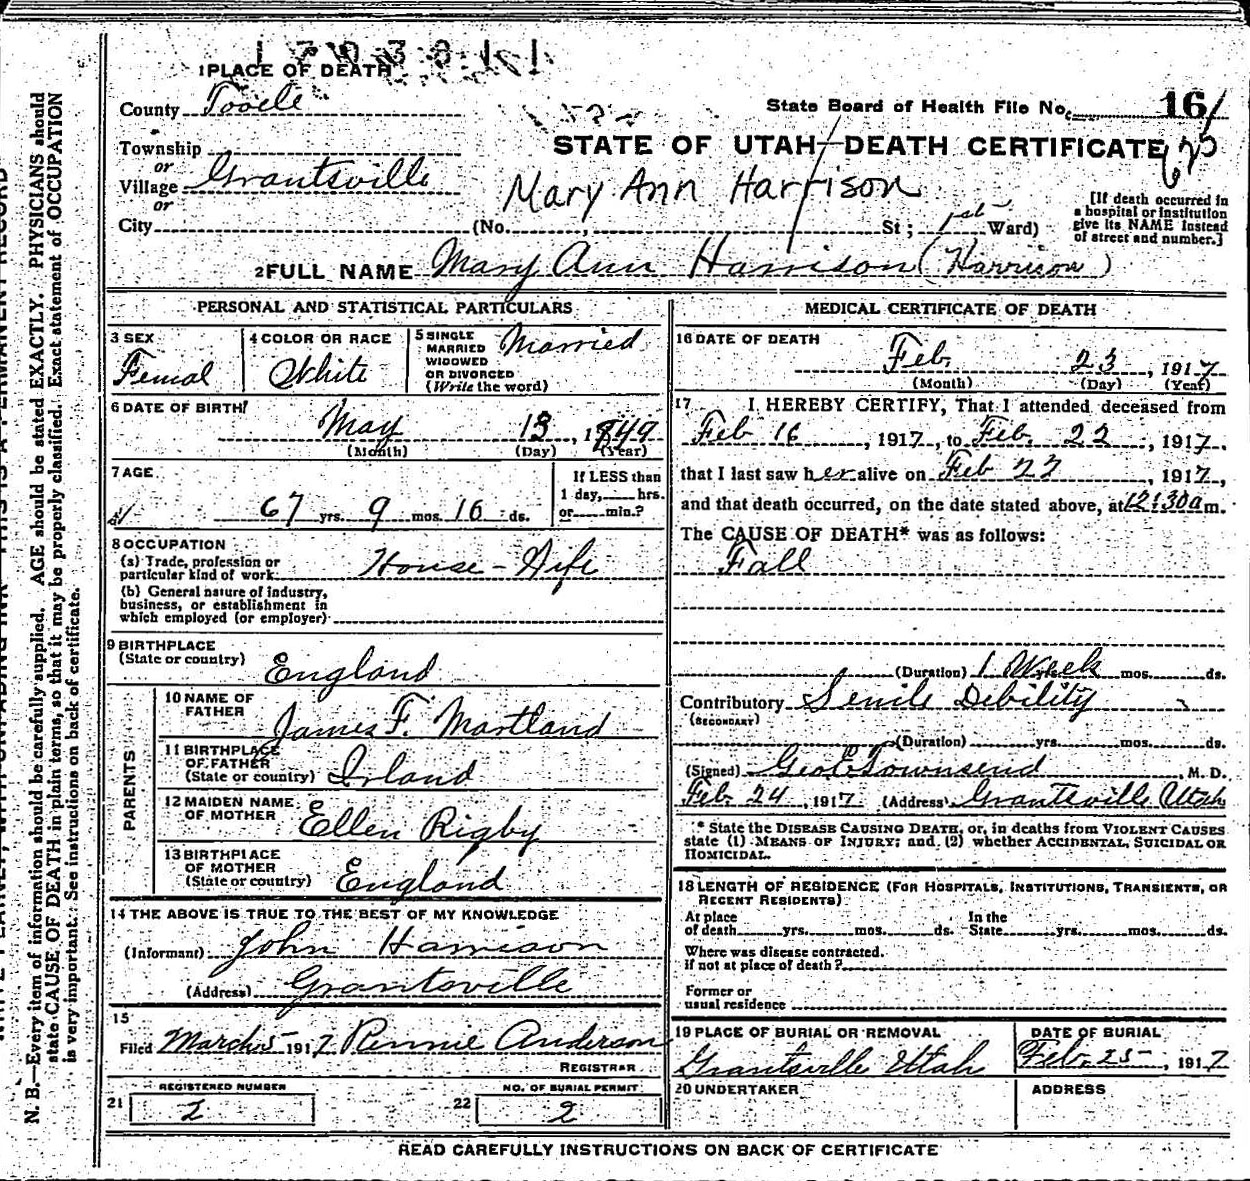 1 PLACE OF DEATH
County Tooele
State Board of Health File No. 16
Township
or
Village Grantsville
or
City
STATE OF UTAH—DEATH CERTIFICATE
Mary Ann Harrison
(No. St; 1st Ward)
[If death occurred in
a hospital or institution
give its NAME instead
of street and number.]
2 FULL NAME Mary Ann Harrison (Harrison)
PERSONAL AND STATISTICAL PARTICULARS
3 SEX
Femal
4 COLOR OR RACE
White
5 SINGLE
MARRIED
WIDOWED
OR DIVORCED
(Write the word)
Married
6 DATE OF BIRTH
May 13, 1849
(Month) (Day) (Year)
7 AGE
67 yrs. 9 mos. 10 ds.
If LESS than
1 day, hrs.
or min.?
8 OCCUPATION
(a) Trade, profession or
particular kind of work House-Wife
(b) General nature of industry,
business, or establishment in
which employed (or employer)
9 BIRTHPLACE
(State or country) England
PARENTS
10 NAME OF
FATHER James F. Martland
11 BIRTHPLACE
OF FATHER
(State or country) Irland
12 MAIDEN NAME
OF MOTHER Ellen Rigby
13 BIRTHPLACE
OF MOTHER
(State or country) England
14 THE ABOVE IS TRUE TO THE BEST OF MY KNOWLEDGE
(Informant) John Harrison
(Address) Grantsville
15
Filed March 5 1917 Rennie Anderson
REGISTRAR
REGISTERED NUMBER
21 2
NO. OF BURIAL PERMIT
22 2
MEDICAL CERTIFICATE OF DEATH
16 DATE OF DEATH
Feb. 23, 1917
(Month) (Day) (Year)
17 I HEREBY CERTIFY, That I attended deceased from
Feb 16, 1917, to Feb. 22, 1917,
that I last saw her alive on Feb 22, 1917,
and that death occurred, on the date stated above, at 12:30 a m.
The CAUSE OF DEATH* was as follows:
Fall
(Duration) 1 Week mos. ds.
Contributory Senile Debility
(SECONDARY)
(Duration) yrs. mos. ds.
(Signed) Geo E Townsend, M. D.
Feb 24, 1917 (Address) Grantsville Utah
* State the DISEASE CAUSING DEATH, or, in deaths from VIOLENT CAUSES
state (1) MEANS OF INJURY; and (2) whether ACCIDENTAL, SUICIDAL OR
HOMICIDAL.
18 LENGTH OF RESIDENCE (FOR HOSPITALS, INSTITUTIONS, TRANSIENTS, OR
RECENT RESIDENTS)
At place
of death yrs. mos. ds.
In the
State yrs. mos. ds.
Where was disease contracted.
if not at place of death?
Former or
usual residence
19 PLACE OF BURIAL OR REMOVAL
Grantsville Utah
DATE OF BURIAL
Feb. 25, 1917
20 UNDERTAKER
ADDRESS
READ CAREFULLY INSTRUCTIONS ON BACK OF CERTIFICATE
N. B.—Every item of information should be carefully supplied. AGE should be stated EXACTLY. PHYSICIANS should
state CAUSE OF DEATH in plain terms, so that it may be properly classified. Exact statement of OCCUPATION
is very important. See instructions on back of certificate.